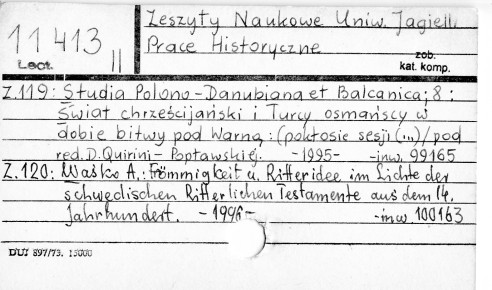 Zeszyty Naukowe Uniw. Jagiell.
11413 II
Lect.
Prace Historyczne
zob.
kat. komp.
Z.119: Studia Polono-Danubiana et Balcanica; 8:
Świat chrześcijański i Turcy osmańscy w
dobie bitwy pod Warną: (pokłosie sesji (...)/pod
red. D. Quirini-Popławskiej. -1995- -inw. 99165
Z.120: Waśko A.: Frömmigkeit u. Ritteridee im Lichte der
schwedischen Ritterlichen Testamente aus dem 14.
Jahrhundert. -1996- -inw. 100163
DUJ 897/73. 15000